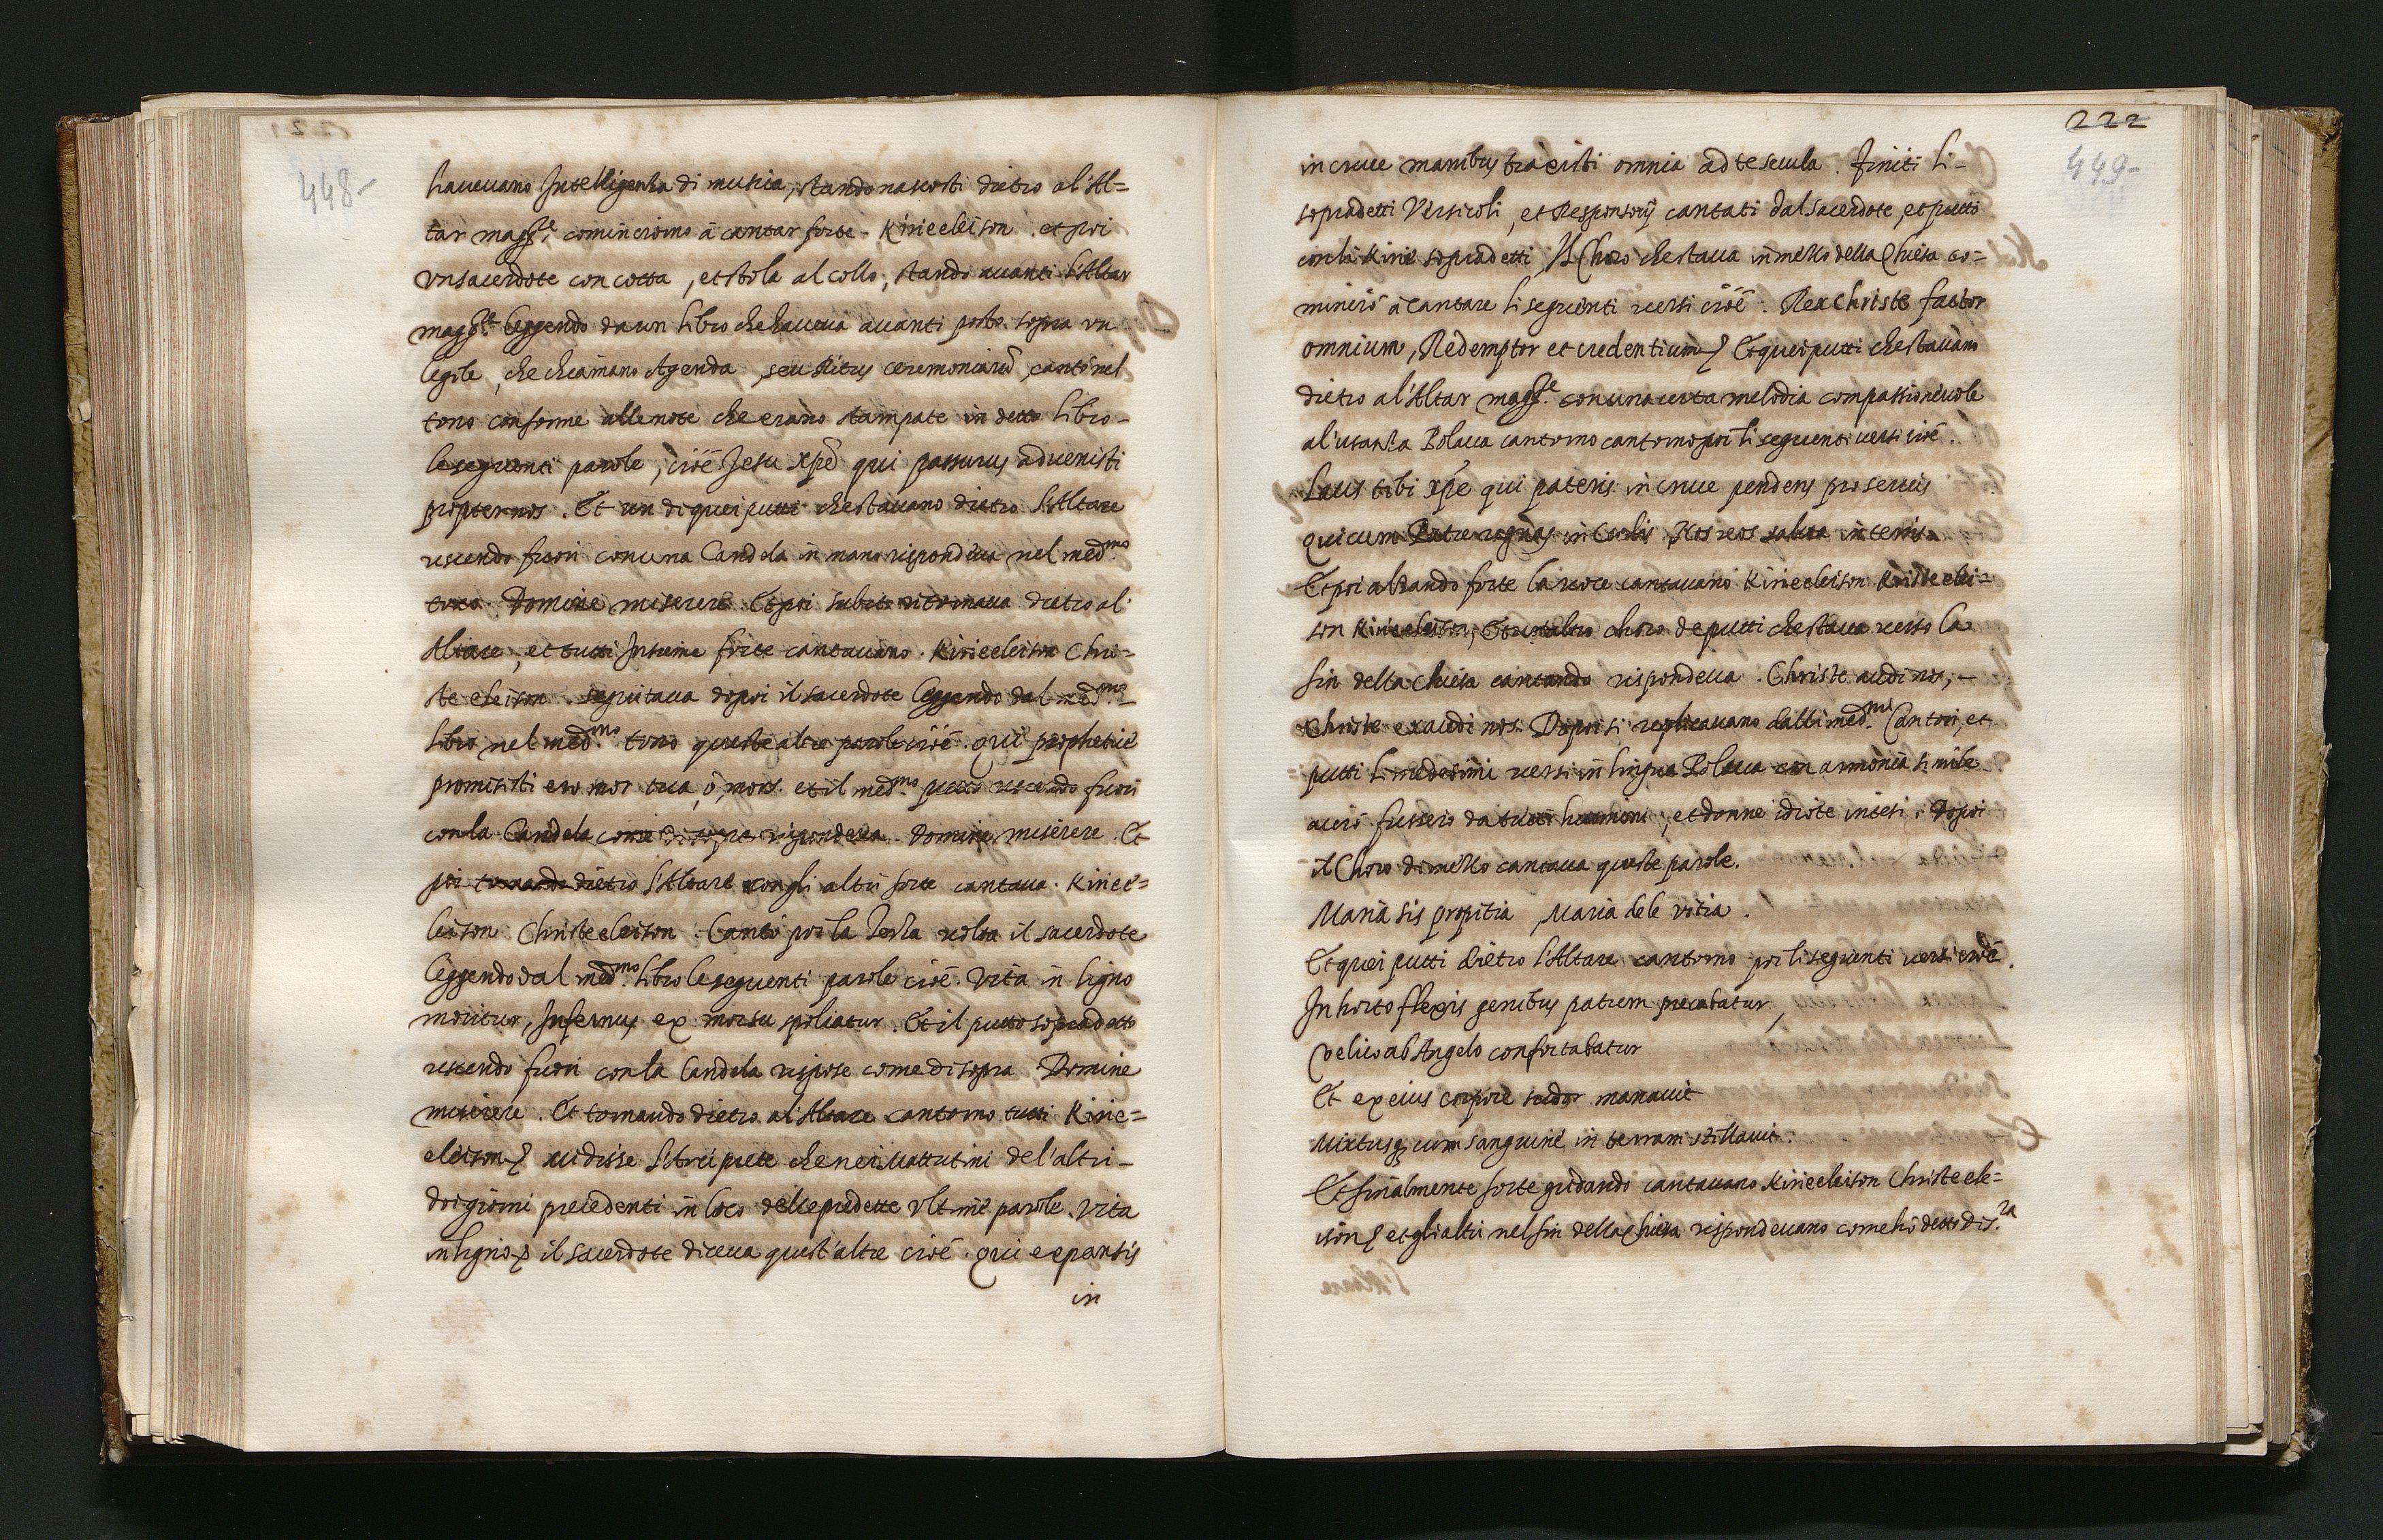 448-
havevano Intelligenza di musica, stando nascosti dietro al'Al=
tar magg.re cominciorno à cantar forte. Kirieeleison. et poi
un sacerdote con cotta, et stola al collo, stando avanti l'Altar
magg.re leggendo da un libro che haveva avanti posto sopra un
legile, che chiamano Agenda, seu Ritus ceremoniarũ, cantò nel
tono conforme alle note che erano stampate in detto libro-
le seguenti parole, cioè Jesu xpẽ qui passurus advenisti
propter nos. Et un di quei putti che stavano dietro l'Altare
uscendo fuori con una Candela in mano rispondeva nel med.mo
tono. Domine miserere. Et poi subito ritornava dietro al'
Altare, et tutti Insieme forte cantavano. Kirieeleison Chri=
ste eleison. seguitava dopoi il sacerdote leggendo dal med.mo
libro nel med.mo tono queste altre parole cioè. qui propheticè
promisisti ero mor tua, ò, mors. et il med.mo putto uscendo fuori
con la Candela come di sopra rispondeva. Domine miserere. Et
poi tornando dietro l'Altare con gli altri forte cantava. Kiriee=
leison Christeeleison. Cantò poi la terza volta il sacerdote
leggendo dal med.mo libro le seguenti parole cioè. Vita in ligno
moritur, Infernus ex morsu spoliatur. Et il putto sopradetto
uscendo fuori con la Candela rispose come di sopra Domine
miserere. Et tornando dietro al'Altare cantorno tutti Kirie=
eleison. mi disse l'Arciprete che nei Mattutini del'altri-
doi giorni precedenti in loco delle predette ultime parole. Vita
in ligno il sacerdote diceva quest'altre cioè. qui expansis
in
222
449-
in cruce manibus traxisti omnia ad te secula. Finiti li-
sopradetti Versicoli, et Responsorij cantati dal sacerdote, et putti
con li Kirie sopradetti, Il Choro che stava in mezzo della Chiesa co=
minciò à cantare li seguenti versi cioè. Rex Christe factor
omnium, Redemptor et credentium. Et quei putti che stavano
dietro al'Altar magg.re con una certa melodia compassionevole
al'usanza Polacca cantorno cantorno poi li seguenti versi cioè.
Laus tibi xpẽ qui pateris in cruce pendens pro servis
qui cum Patre regnas in Coelis, Nos reos salva in terris
Et poi alzando forte la voce cantavano Kirieeleison Kristeelei=
son Kirieeleison, Et un'altro choro de putti che stava verso la
fin della Chiesa cantando rispondeva. Christe audi nos,-
Christe exaudi nos. Dopoi si replicavano dalli med.mi Cantori, et
putti li medesimi versi in lingua Polacca con armonia simile
acciò fussero da tutti huomini, et donne idiote intesi. Dopoi
il Choro di mezzo cantava queste parole.
Maria sis propitia, Maria dele vitia.
Et quei putti dietro l'Altare cantorno poi li seguenti versi cioè.
In horto flexis genibus patrem precabatur,
velico ab Angelo confortabatur
Et ex eius corpore sudor manavit
Mixtusq; cum sanguine in terram stillavit.
Et finalmente forte gridando cantavano Kirieeleison Christeele=
ison et gli altri nel fin della Chiesa rispondevano come hò detto di s.ra